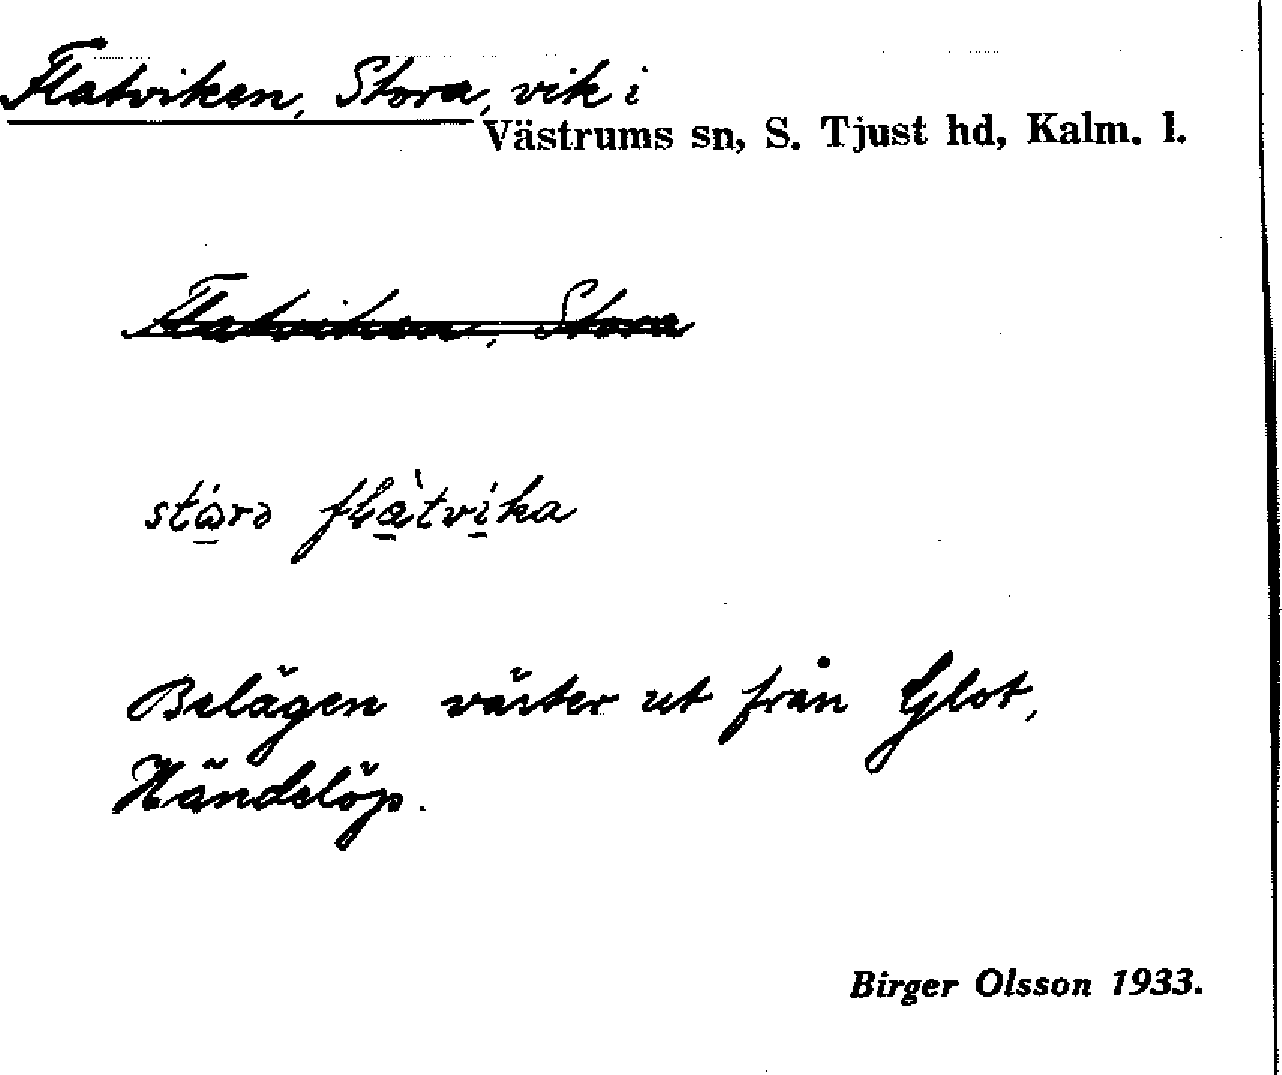 Flatviken, Stora, vik i
Västrums sn, S. Tjust hd, Kalm. l.
Flatviken, Stora
Belägen väster ut från Glot,
Händelöp.
Birger Olsson 1933.